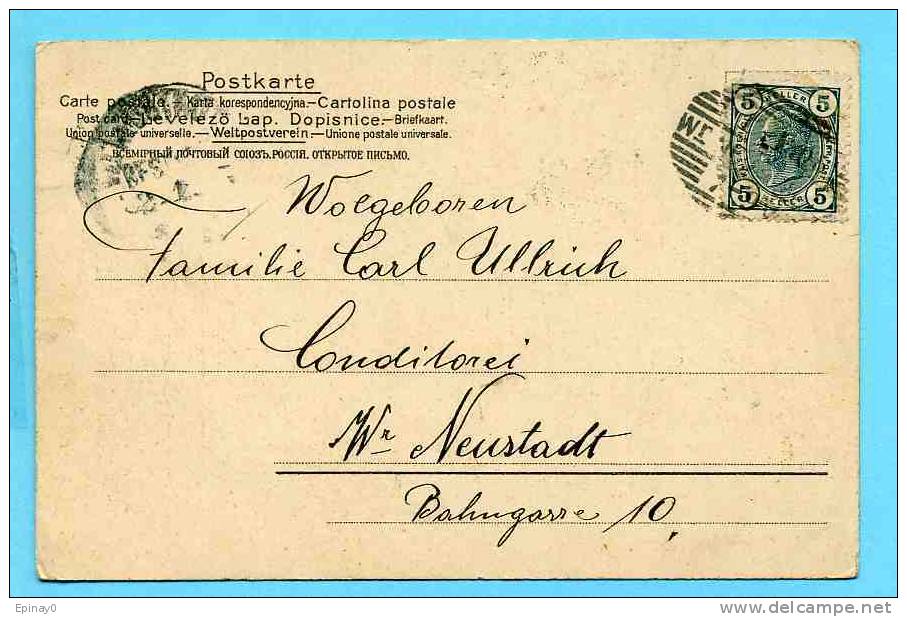 Postkarte
Carte postale.—Karta korespondencyjna.—Cartolina postale
Post card.—Levelező Lap. Dopisnice.—Briefkaart.
Union postale universelle.—Weltpostverein.—Unione postale universale.
ВСЕМІРНЫЙ ПОЧТОВЫЙ СОЮЗЪ. РОССІЯ. ОТКРЫТОЕ ПИСЬМО.
5 HELLER 5
5 HELLER 5
Wolgeboren
Familie Carl Ullrich
Conditorei
Wr Neustadt
Bahngasse 10,
Epinay0
http://www.delcampe.net